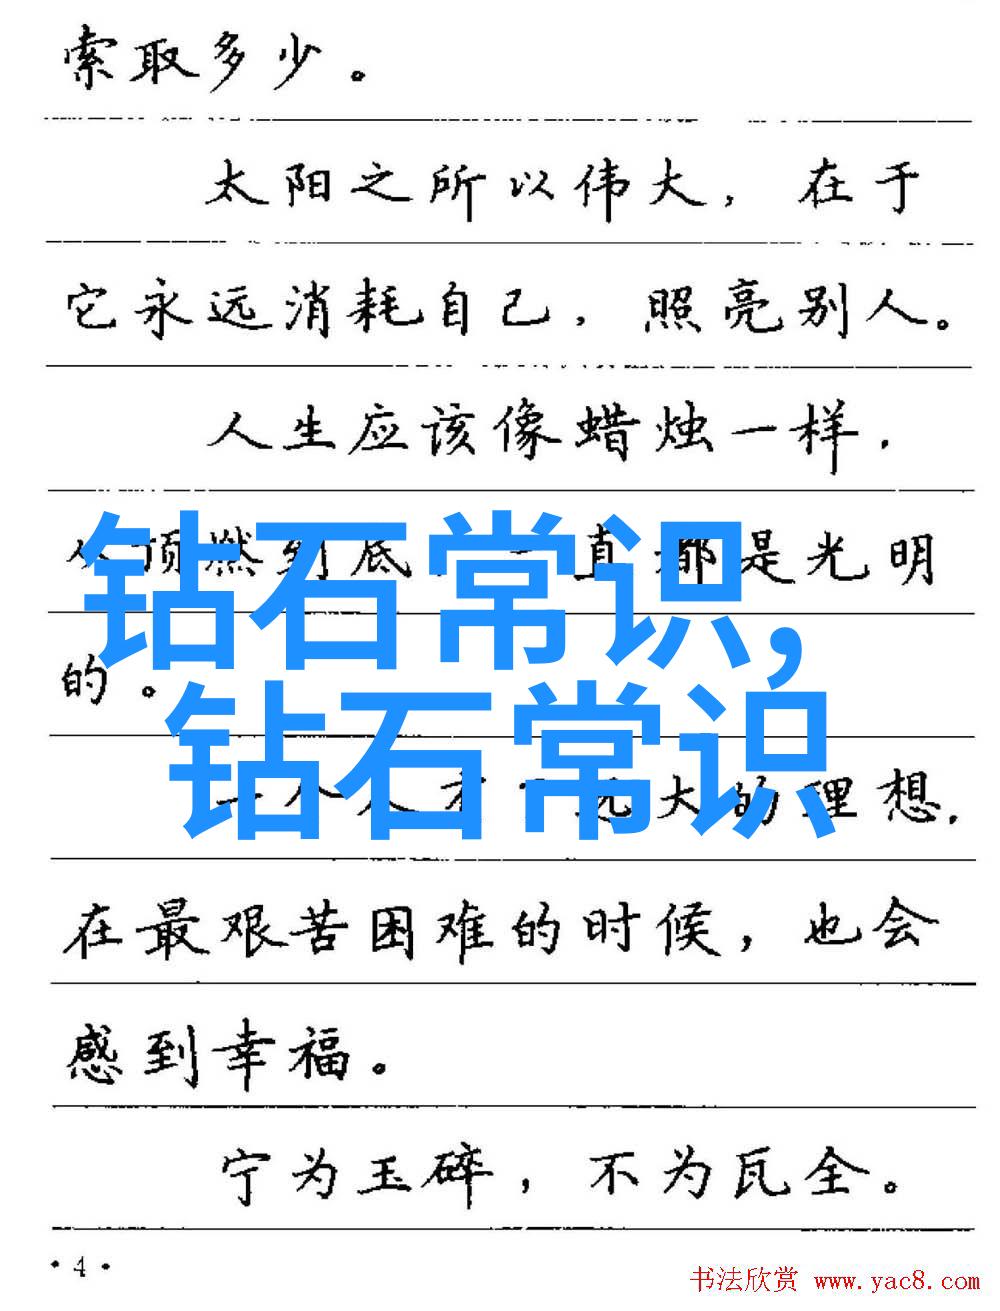 索取多少。
太阳之所以伟大，在于
它永远消耗自己，照亮别人。
人生应该像蜡烛一样，
从顶燃到底，一直都是光明
的。
钻石常识,
钻石常识
一个人有了远大的理想，
在最艰苦困难的时候，也会
感到幸福。
宁为玉碎，不为瓦全。
·4·
书法欣赏 www.yac8.com